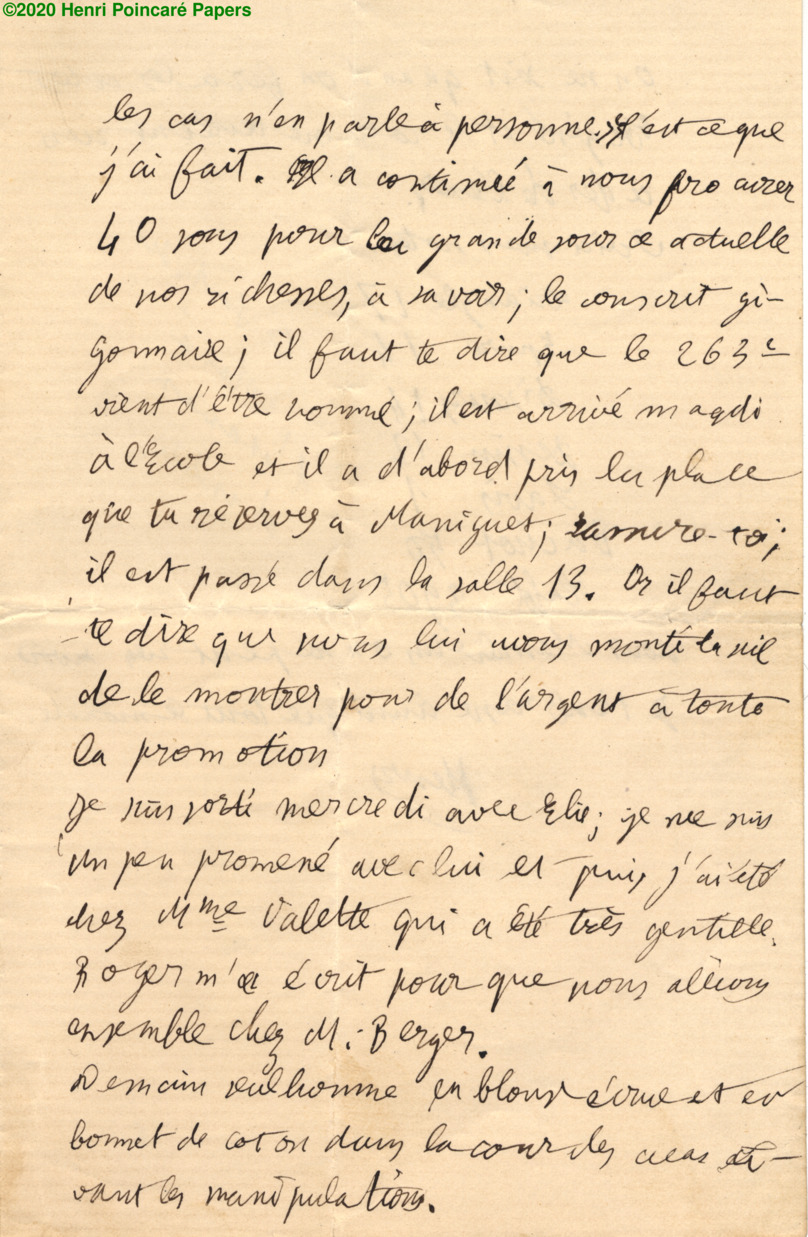 ©2020 Henri Poincaré Papers
les cas n'en parle à personne. C'est ce que
j'ai fait. Il a continué à nous procurer
40 sous pour la grande source actuelle
de nos richesses, à savoir ; le conscrit gi-
gonnaire ; il faut te dire que le 263e
vient d'être nommé ; il est arrivé mardi
à l'Ecole et il a d'abord pris la place
que tu réserves à Maniguet ; rassure-toi ;
il est passé dans la salle 13. Or il faut
te dire que nous lui avons monté la scie
de le montrer pour de l'argent à toute
la promotion
Je suis sorti mercredi avec Elie ; je me suis
un peu promené avec lui et puis j'ai été
chez Mme Valette qui a été très gentille.
Roger m'a écrit pour que nous allions
ensemble chez M. Berger.
Demain seulhomme en blouse écrue et en
bonnet de coton dans la cour des acas
vant les manipulations.